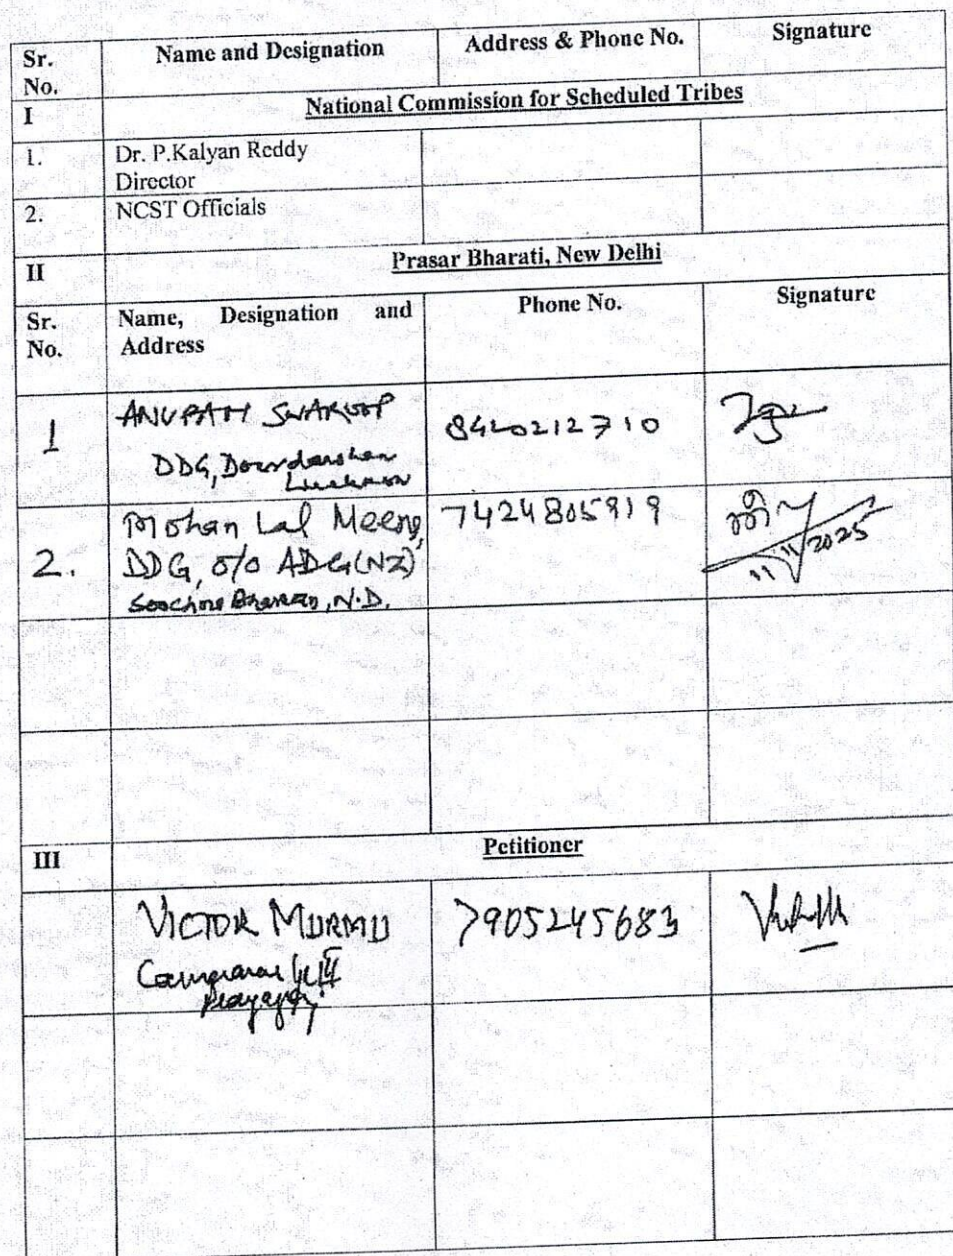 Sr. No. Name and Designation Address & Phone No. Signature
I National Commission for Scheduled Tribes
1. Dr. P.Kalyan Reddy
Director
2. NCST Officials
II Prasar Bharati, New Delhi
Sr. No. Name, Designation and Address Phone No. Signature
1 ANUPAM SWAROOP 8420212710
DDG, Doordarshan
Lucknow
2. Mohan Lal Meena, 7424805919
DDG, O/o ADG(NZ)
Soochna Bhawan, N.D. 11/11/2025
III Petitioner
VICTOR MURMU 7905245683
Cameraman Gr II
Prayagraj